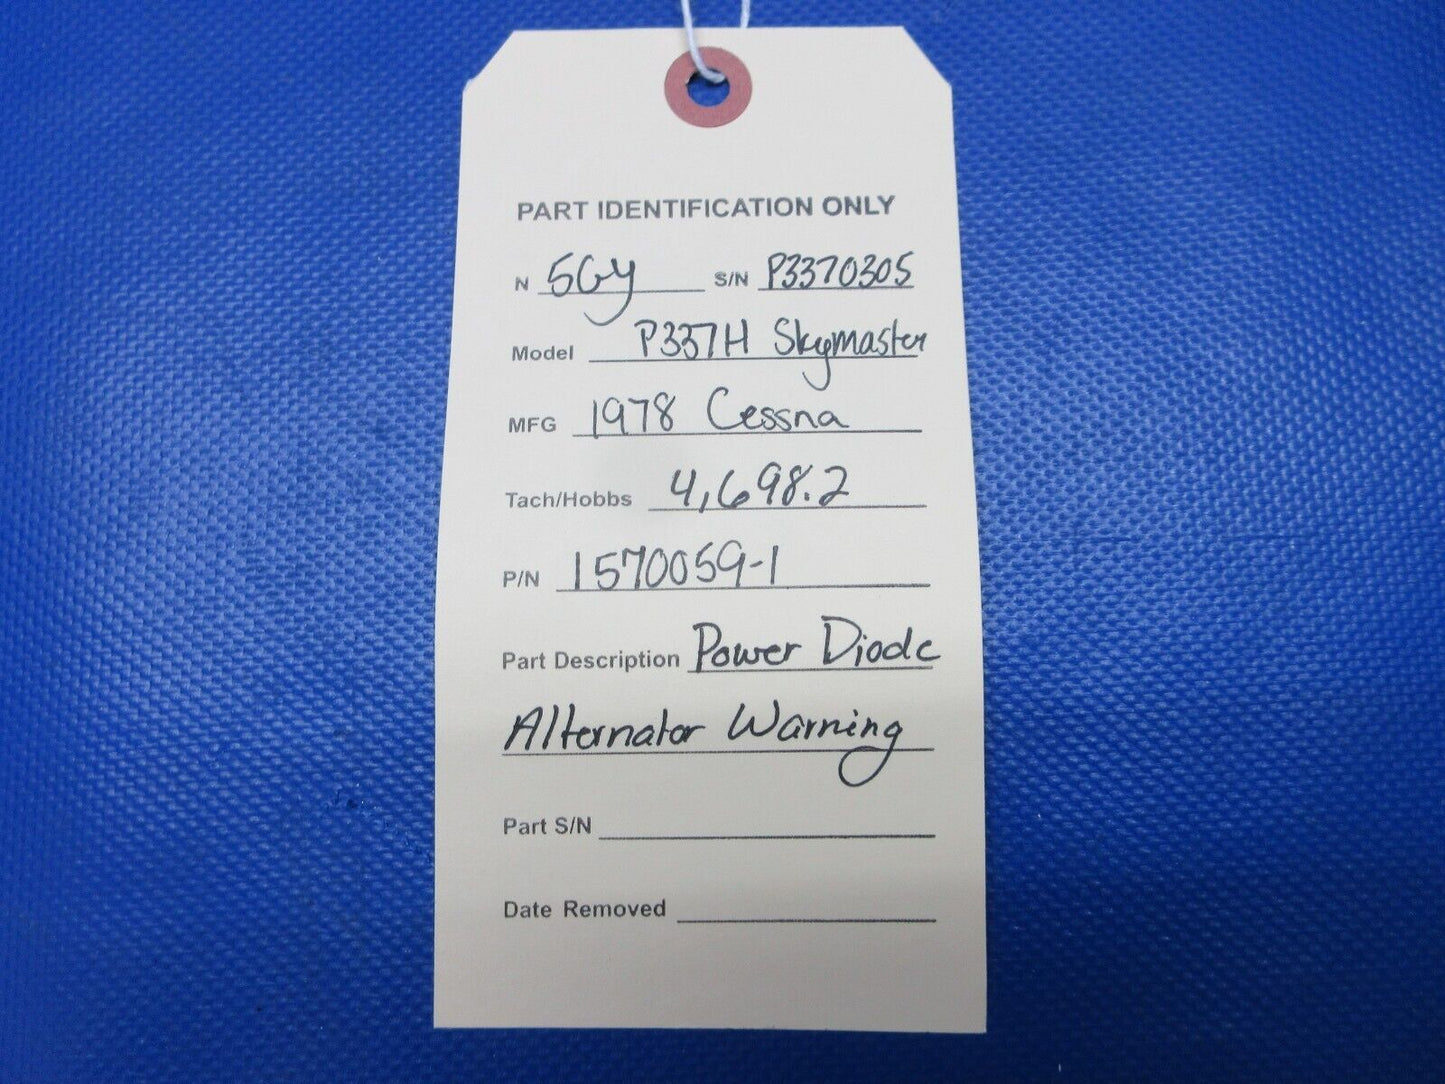 PART IDENTIFICATION ONLY
N 5GY S/N P3370305
Model P337H Skymaster
MFG 1978 Cessna
Tach/Hobbs 4,698.2
P/N 1570059-1
Part Description Power Diode
Alternator Warning
Part S/N
Date Removed